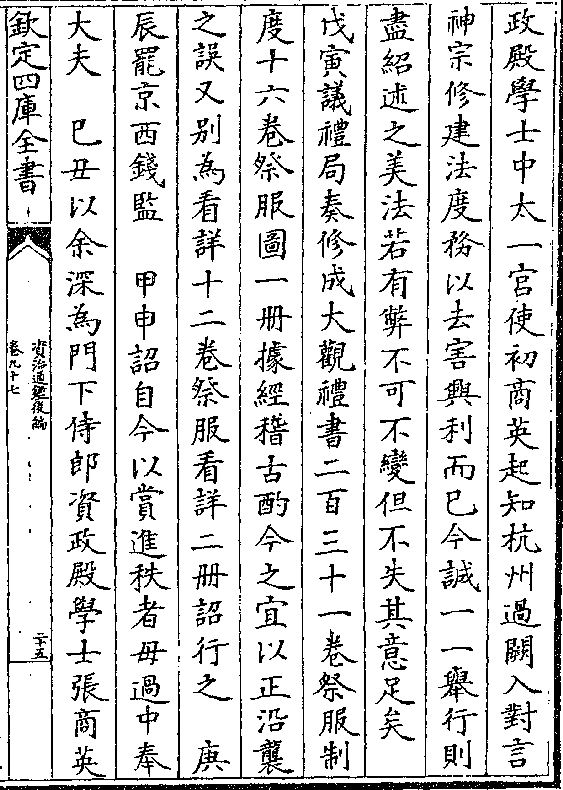 政殿學士中太一宮使初商英起知杭州過闕入對言
神宗修建法度務以去害興利而已今誠一一舉行則
盡紹述之美法若有弊不可不變但不失其意足矣
戊寅議禮局奏修成大觀禮書二百三十一卷祭服制
度十六卷祭服圖一冊據經稽古酌今之宜以正沿襲
之誤又別為看詳十二卷祭服看詳二冊詔行之　庚
辰罷京西錢監　甲申詔自今以賞進秩者毋過中奉
大夫　己丑以余深為門下侍郎資政殿學士張商英
欽定四庫全書
資治通鑑後編
卷九十七
二十五